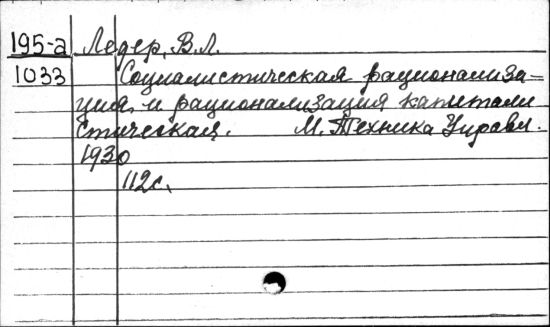 195-а Ледер, В.Л.
1033 Социалистическая рационализа=
ция, и рационализация капитали
стическая. М. Техника Управл.
1930
112с.